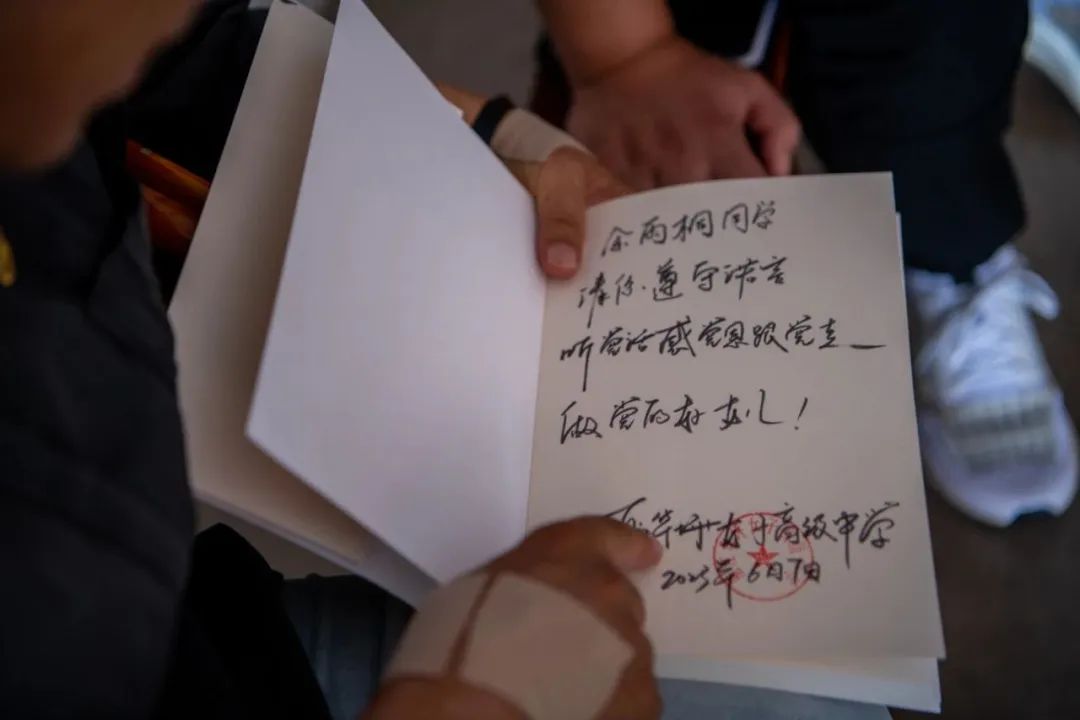 余雨桐同学
请你遵守诺言
听党话感党恩跟党走
做党的好儿！
华坪女子高级中学
2025年6月7日